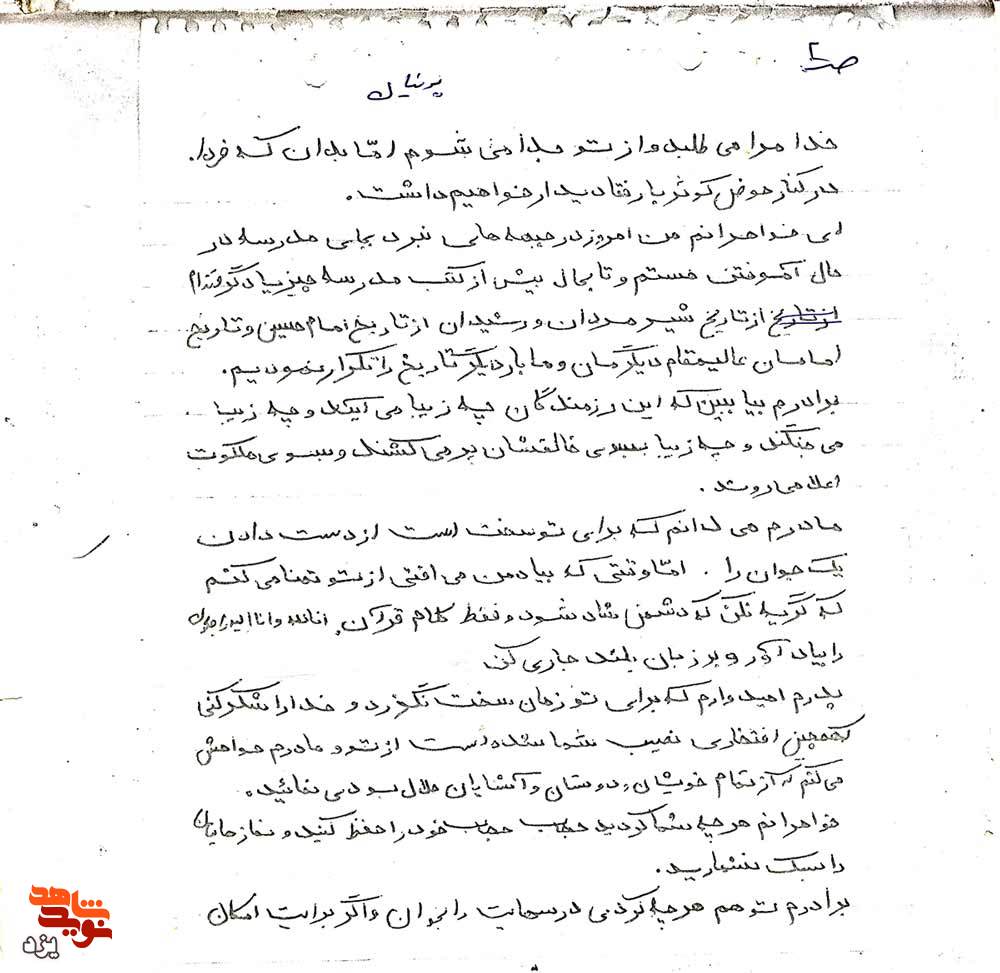 ص ۲
خدا مرا می طلبد و از تو جدا می شوم امّا بدان که فردا.
در کنار حوض کوثر با رفقا دیدار خواهیم داشت.
ای خواهرانم من امروز در جبهه های نبرد بجای مدرسه در
حال آموختن هستم و تا بحال بیش از کتب مدرسه چیز یاد گرفته‌ام
از تاریخ از تاریخ شیر مردان و رشیدان از تاریخ امام حسین و تاریخ
امامان عالیمقام دیگرمان و ما بار دیگر تاریخ را تکرار نمودیم.
برادرم بیا ببین که این رزمندگان چه زیبا می آیند و چه زیبا
می جنگند و چه زیبا بسوی خالقشان پر می کشند و بسوی ملکوت
اعلا می روند.
مادرم می دانم که برای تو سخت است از دست دادن
یک جوان را. امّا وقتی که بیاد من می افتی از تو تمنا می کنم
که گریه نکن که دشمن شاد شود و فقط کلام قرآن، انالله وانا الیه راجعون
را بیاد آور و بر زبان بلند جاری کن
پدرم امیدوارم که برای تو زمان سخت نگذرد و خدا را شکر کنی
که همچین افتخاری نصیب شما شده است از تو و مادرم خواهش
می کنم که از تمام خویشان، دوستان و آشنایان حلال بودی نمائید.
خواهرانم هر چه شما کردید حجاب حجاب خود را حفظ کنید و نمازهایتان
را سبک نشمارید.
برادرم تو هم هر چه کردی درسهایت را بخوان و اگر برایت امکان
نوید شاهد
یزد